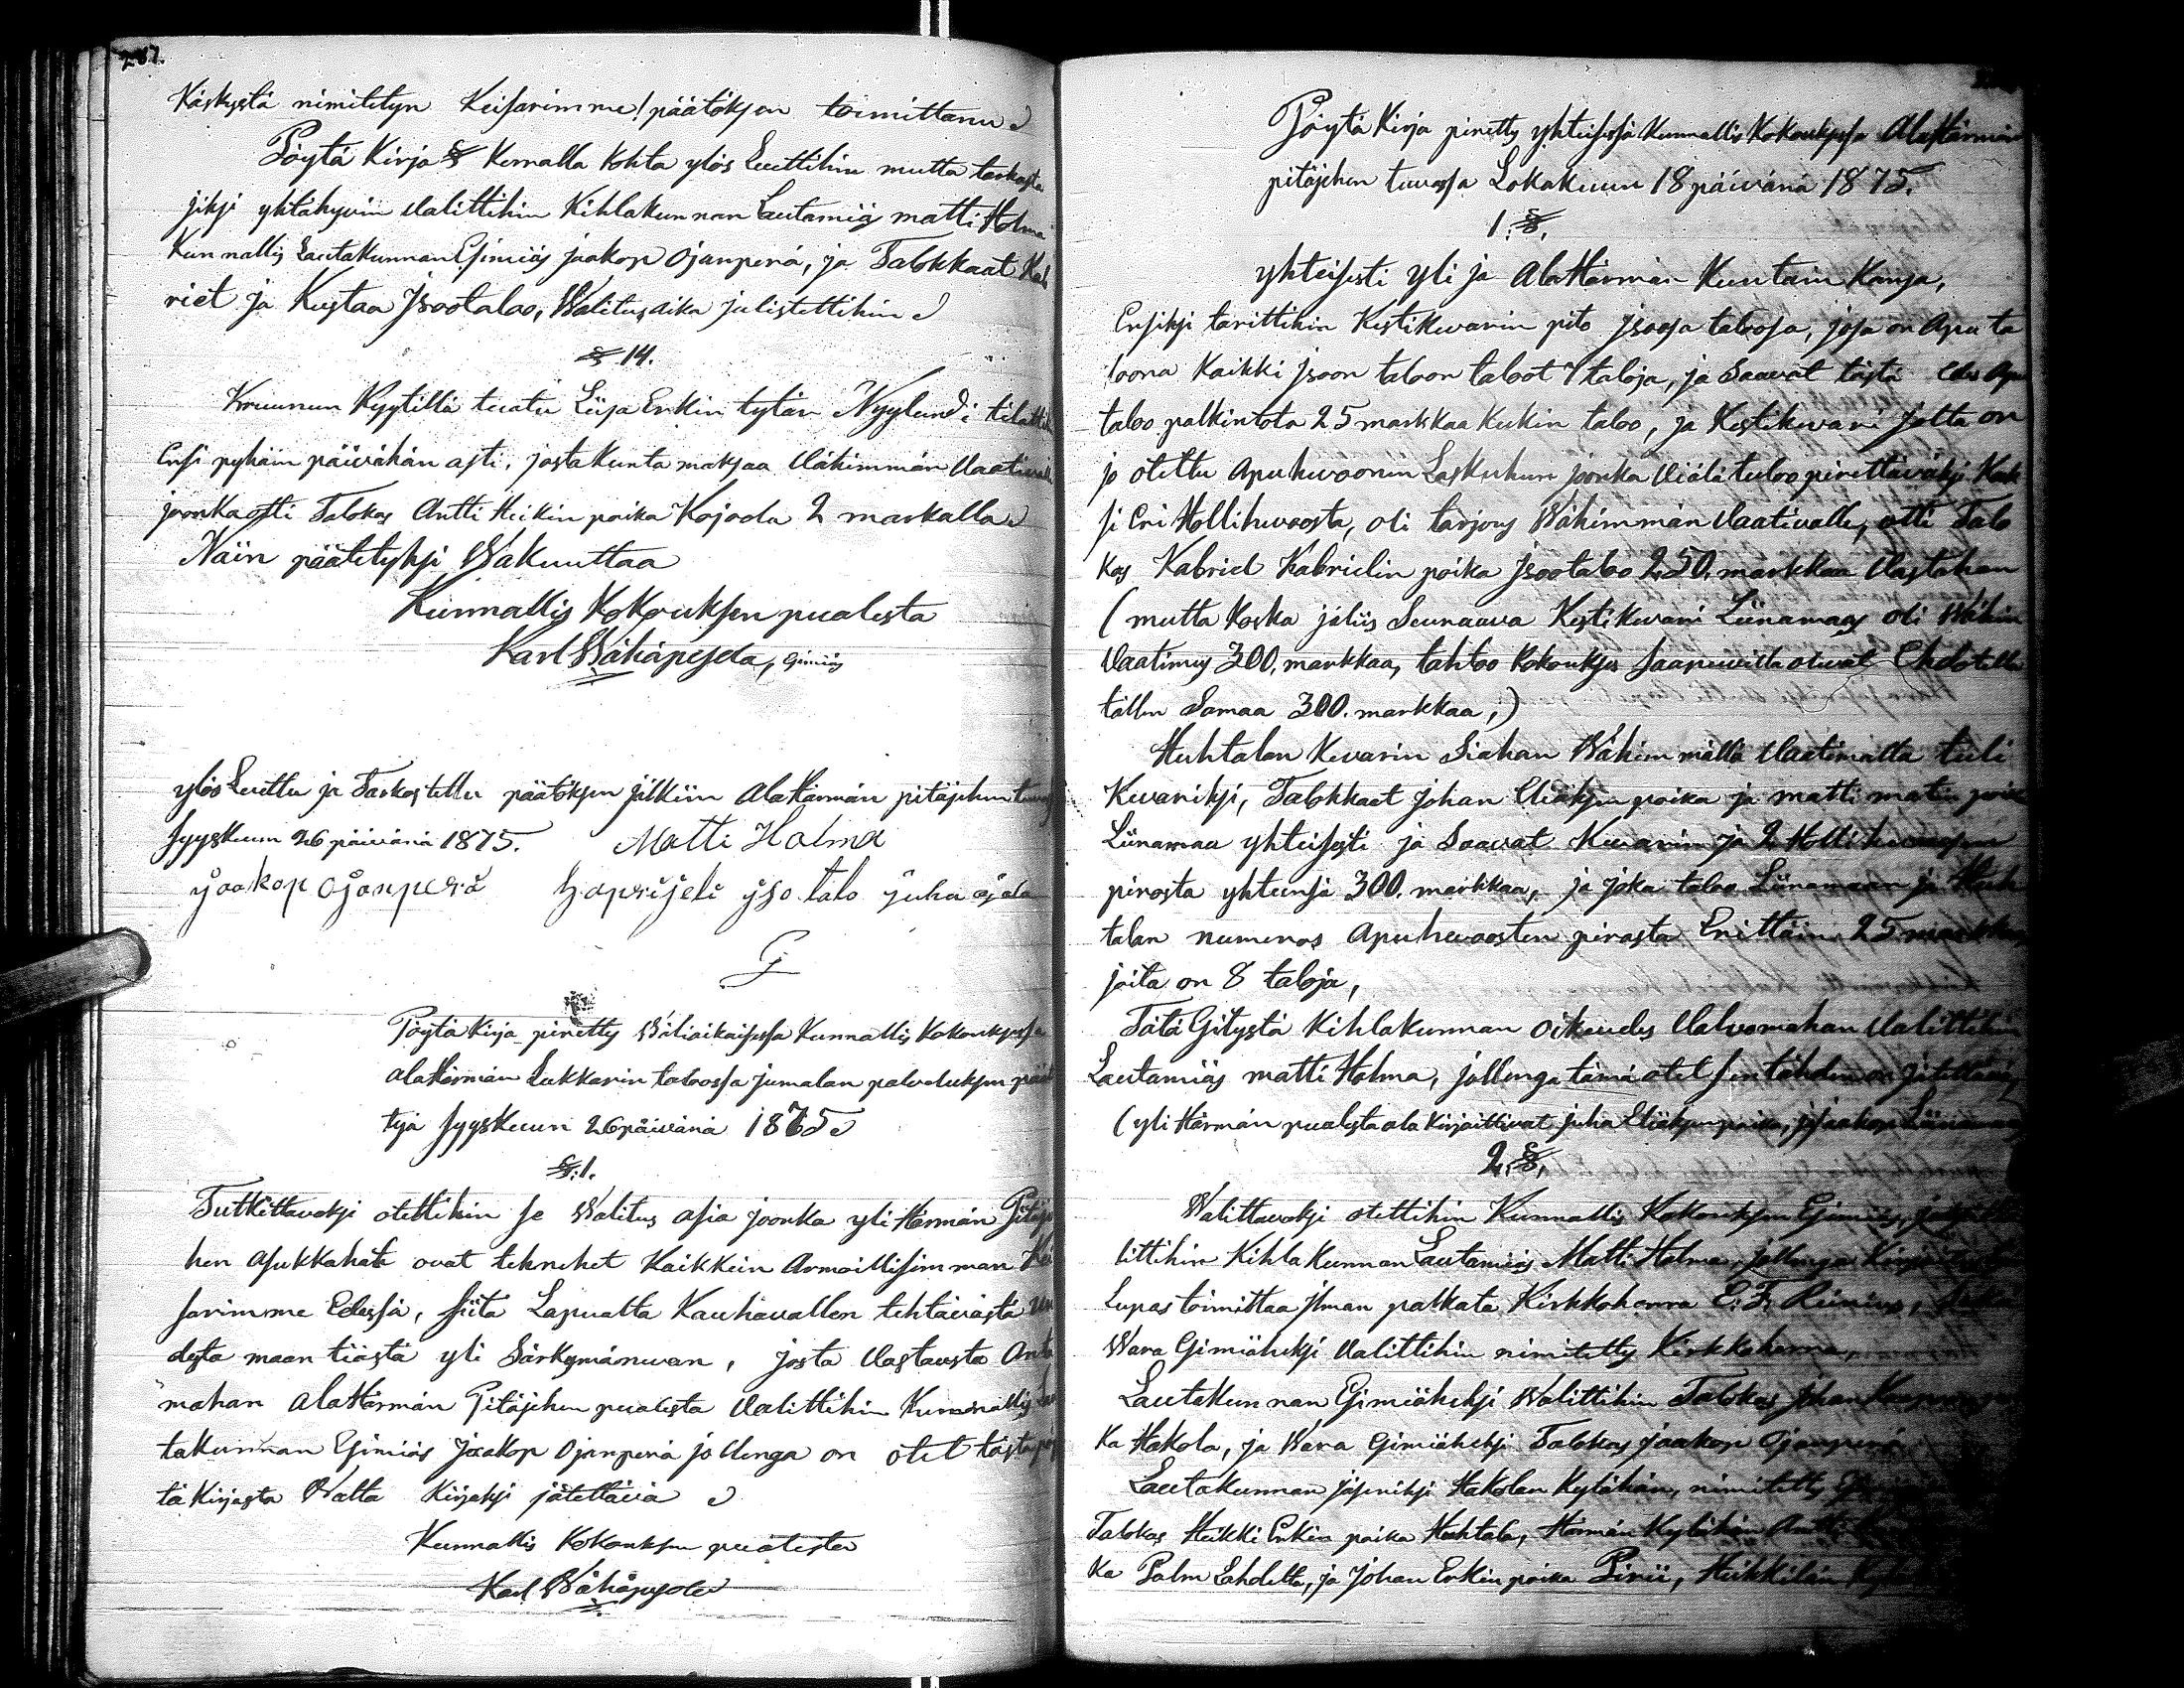 287.
Käskystä nimitetyn Keisarimme! päätöksen toimittanu
Pöytä Kirja § Kornalla Kohta ylös Luettihin mutta tarkasta
jiksi yhtähyvin valittihin Kihlakunnan Lautamiäs matti Holma
Kunnallis Lautakunnan Esimiäs jaakop Ojanperä, ja Talokkaat Kab
riet ja Kustaa Jsootaloo, Walitus aika julistettihin
§ 14.
Kruunun Kyytillä tuatu Liisa Erkin tytär Nyylund i tilattih
Ensi pyhään päivähän asti, josta kunta maksaa vähimmän vaativalle
joonka otti Talokas Antti Heikin poika Kojoola 2 markalla
Näin päätetyksi Wakuuttaa
Kunnallis Kokouksen puolesta
Karl Wähäpesola, Esimiäs
ylös Luettu ja Tarkastettu päätöksen jälkiin AlaHärmän pitäjehen tuvas
syyskuun 26 päivänä 1875. Matti Holma
jaakop Ojanperä kaprijeli iso talo juha ojala
Pöytä Kirja piretty Wäliaikaisessa Kunnallis Kokouksessa
alaHärmän Lukkarin taloossa jumalan palveluksen päät
tyä syyskuun 26 päivänä 1875
§.1.
Tutkittavaksi otettihin se Walitus asia joonka yli Härmän Pitäje
hen asukkahat ovat tehnehet Kaikkein Armoillisimman Kei
sarimme Edessä, siitä Lapualta Kauhavallen tehtävästä uu
desta maan tiästä yli Särkymänevan, josta vastausta Anta
mahan alaHärmän Pitäjehen puolesta valittihin Kunnallis Lau
takunnan Esimiäs Jaakop Ojanperä jollenga on otet tästä pöy
tä Kirjasta Walta Kirjaksi jätettävä
Kunnallis Kokouksen puolesta
Karl Wähäpesola
Pöytä Kirja piretty yhteisessä Kunnallis Kokouksessa AlaHärmän
pitäjehen tuvassa Lokakuun 18 päivänä 1875.
1.§.
yhteisesti yli ja AlaHärmän Kuntain Kansa,
Ensiksi tarittihin Kestikevarin pito Jsoosa taloosa, josa on Apu ta
loona Kaikki Jsoon taloon taloot 7 taloja, ja Saavat tästä Apu
taloo palkintota 25 markkaa kukin taloo, ja Kestikevari jolta on
jo otettu Apuhevoonin Laskuhun joonka viälä tuloo pirettäväksi Kak
si Eri Hollihevoosta, oli tarjous Wähimmän vaativalle, otti Talo
kas Kabriel Kabrielin poika Jsootaloo 250. markkaa vastahan
(mutta koska jäliis Seuraava Kestikevari Liinamaas oli Wähin
vaatimus 300. markkaa, tahtoo kokoukses saapuvilla olevat Ehdotella
tällen Samaa 300. markkaa,)
Huhtalan Kevarin Siahan Wähimmällä vaatimalla tuli
Kevariksi, Talokkaat Johan Eliäksen poika ja matti matin poika
Liinamaa yhteisesti ja Saavat Kevarin ja 2 Hollihevoosen
pirosta yhteensä 300. markkaa, ja joka taloo Liinamaan ja Huh
talan numeros Apuhevoosten pirosta Erittäin 25 markkaa
joita on 8 taloja,
Tätä Esitystä Kihlakunnan oikeudes valvomahan valittihin
Lautamiäs matti Holma, jollenga tämä otet sen tähden on jätettävä
(yli Härmän puolesta ala kirjoittivat juha Eliäksen poika, ja jaakop Liinamaa
2.§.
Walittavaksi otettihin Kunnallis Kokouksen Esimiäs,
littihin Kihlakunnan Lautamiäs Matti Holma, jollenga
Lupas toimittaa Jlman palkata Kirkkoherra E. F. Rinius,
Wara Esimiäheksi valittihin nimitetty Kirkkoherra,
Lautakunnan Esimiäheksi Walittihin Talokas Johan
ka Hakola, ja Wara Esimiäheksi Talokas jaakop Ojanperä
Lautakunnan Jäseniksi Hakolan Kylähän, nimitetty
Talokas Heikki Erkin poika Huhtala, Härmän Kylähän Antti
ka Palm Lahdelta, ja Johan Erkin poika Pirii, Heikkilän